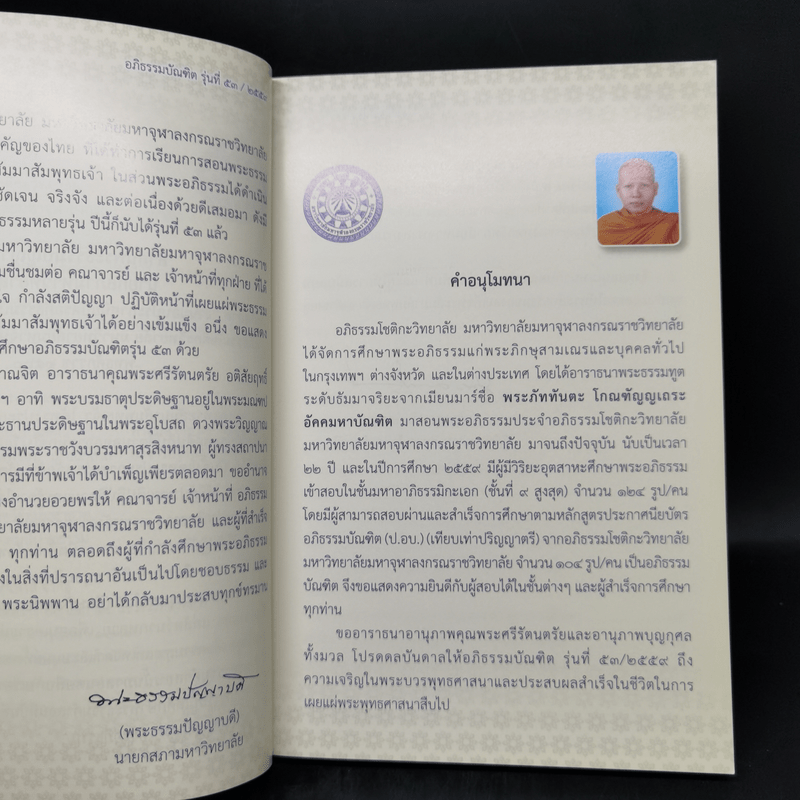 อภิธรรมบัณฑิต รุ่นที่ ๕๓ / ๒๕๕๙
มหาจุฬาลงกรณราชวิทยาลัย
ของไทย ที่ได้ทำการเรียนการสอนพระธรรม
สัมมาสัมพุทธเจ้า ในส่วนพระอภิธรรมได้ดำเนิน
ชัดเจน จริงจัง และต่อเนื่องด้วยดีเสมอมา ดังมี
ธรรมหลายรุ่น ปีนี้ก็นับได้รุ่นที่ ๕๓ แล้ว
มหาวิทยาลัย มหาวิทยาลัยมหาจุฬาลงกรณราช
ชื่นชมต่อ คณาจารย์ และ เจ้าหน้าที่ทุกฝ่าย ที่ได้
กำลังสติปัญญา ปฏิบัติหน้าที่เผยแผ่พระธรรม
สัมมาสัมพุทธเจ้าได้อย่างเข้มแข็ง อนึ่ง ขอแสดง
ศึกษาอภิธรรมบัณฑิตรุ่น ๕๓ ด้วย
อาราธนาคุณพระศรีรัตนตรัย อติสัยฤทธิ์
ฯ อาทิ พระบรมธาตุประดิษฐานอยู่ในพระมณฑป
ประดิษฐานในพระอุโบสถ ดวงพระวิญญาณ
พระราชวังบวรมหาสุรสิงหนาท ผู้ทรงสถาปนา
มีที่ข้าพเจ้าได้บำเพ็ญเพียรตลอดมา ขออำนาจ
อำนวยอวยพรให้ คณาจารย์ เจ้าหน้าที่ อภิธรรม
มหาจุฬาลงกรณราชวิทยาลัย และผู้ที่สำเร็จ
ทุกท่าน ตลอดถึงผู้ที่กำลังศึกษาพระอภิธรรม
ในสิ่งที่ปรารถนาอันเป็นไปโดยชอบธรรม และ
พระนิพพาน อย่าได้กลับมาประสบทุกข์ทรมาน
พระธรรมปัญญาบดี
(พระธรรมปัญญาบดี)
นายกสภามหาวิทยาลัย
คำอนุโมทนา
อภิธรรมโชติกะวิทยาลัย มหาวิทยาลัยมหาจุฬาลงกรณราชวิทยาลัย
ได้จัดการศึกษาพระอภิธรรมแก่พระภิกษุสามเณรและบุคคลทั่วไป
ในกรุงเทพฯ ต่างจังหวัด และในต่างประเทศ โดยได้อาราธนาพระธรรมทูต
ระดับธัมมาจริยะจากเมียนมาร์ชื่อ พระภัททันตะ โกณฑัญญเถระ
อัคคมหาบัณฑิต มาสอนพระอภิธรรมประจำอภิธรรมโชติกะวิทยาลัย
มหาวิทยาลัยมหาจุฬาลงกรณราชวิทยาลัย มาจนถึงปัจจุบัน นับเป็นเวลา
๒๒ ปี และในปีการศึกษา ๒๕๕๙ มีผู้มีวิริยะอุตสาหะศึกษาพระอภิธรรม
เข้าสอบในชั้นมหาอาภิธรรมิกะเอก (ชั้นที่ ๙ สูงสุด) จำนวน ๑๒๔ รูป/คน
โดยมีผู้สามารถสอบผ่านและสำเร็จการศึกษาตามหลักสูตรประกาศนียบัตร
อภิธรรมบัณฑิต (ป.อบ.) (เทียบเท่าปริญญาตรี) จากอภิธรรมโชติกะวิทยาลัย
มหาวิทยาลัยมหาจุฬาลงกรณราชวิทยาลัย จำนวน ๑๐๔ รูป/คน เป็นอภิธรรม
บัณฑิต จึงขอแสดงความยินดีกับผู้สอบได้ในชั้นต่างๆ และผู้สำเร็จการศึกษา
ทุกท่าน
ขออาราธนาอานุภาพคุณพระศรีรัตนตรัยและอานุภาพบุญกุศล
ทั้งมวล โปรดดลบันดาลให้อภิธรรมบัณฑิต รุ่นที่ ๕๓/๒๕๕๙ ถึง
ความเจริญในพระบวรพุทธศาสนาและประสบผลสำเร็จในชีวิตในการ
เผยแผ่พระพุทธศาสนาสืบไป